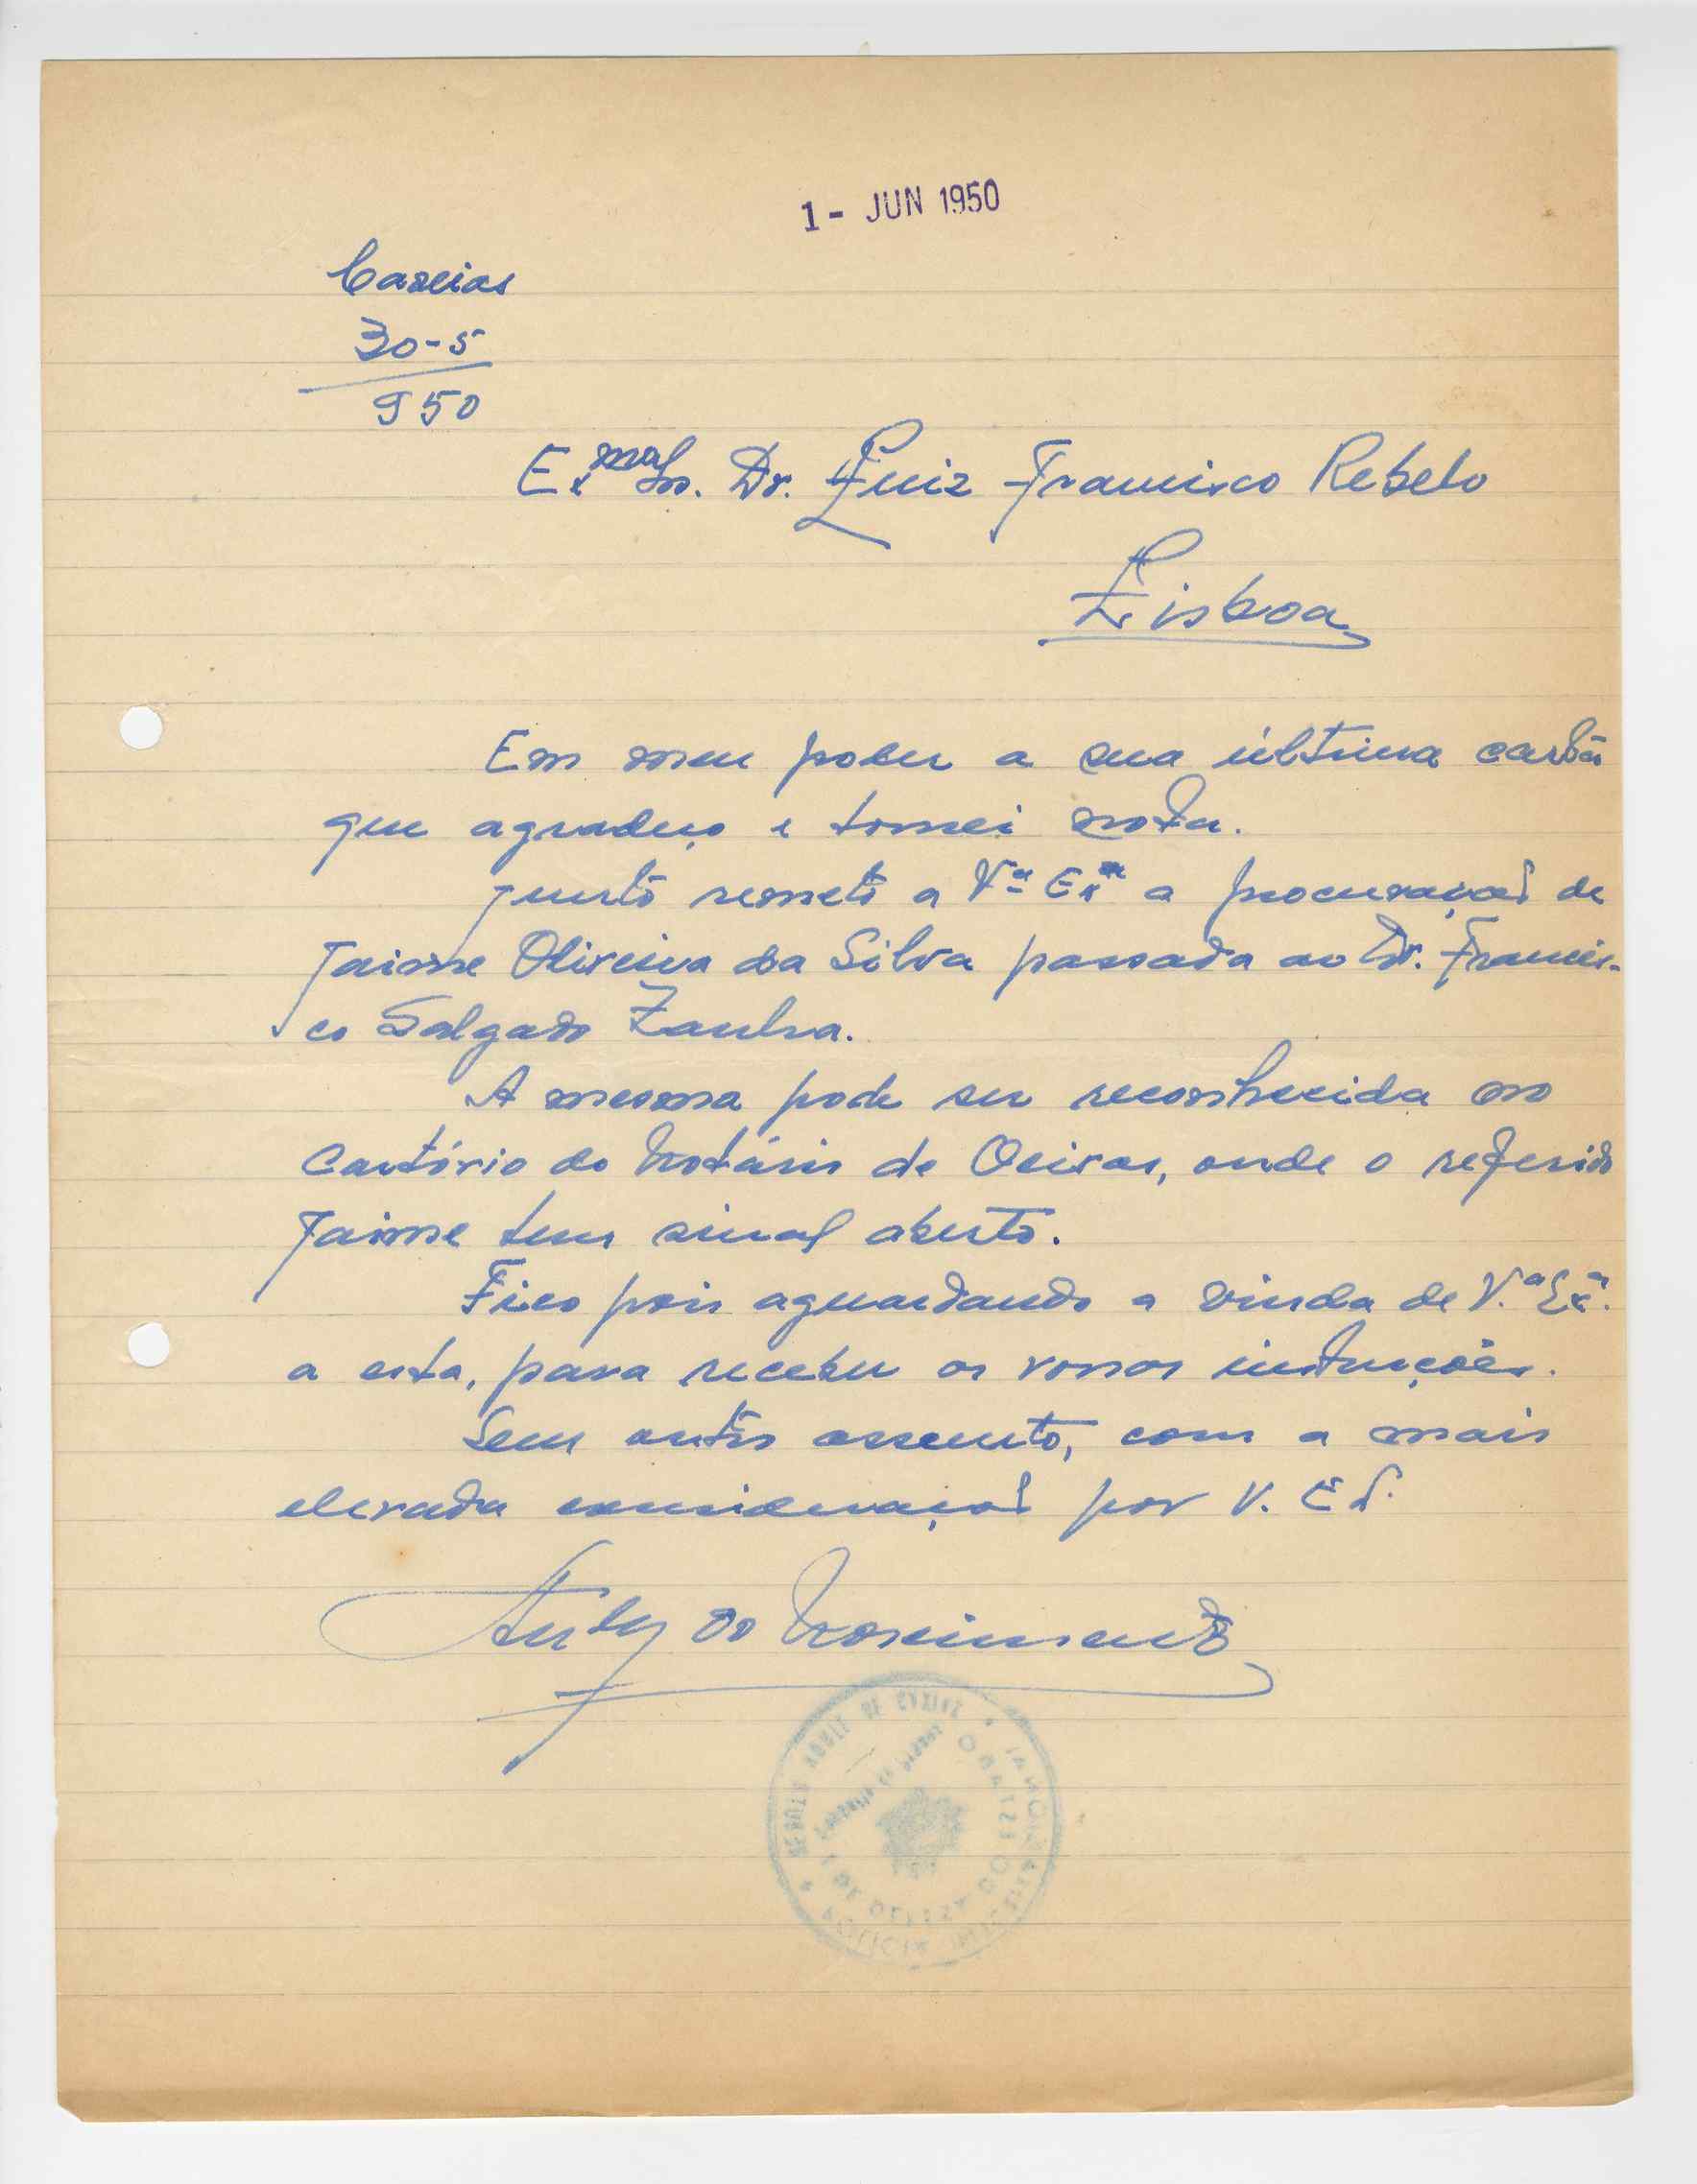 1 - JUN 1950
Caxias
30-5
950
Ex.mo Sr. Dr. Luiz Francisco Rebelo
Lisboa
Em meu poder a sua última carta
que agradeço e tomei nota.
Junto remeto a V.ª Ex.ª a procuração de
Jaime Oliveira da Silva passada ao Dr. Francis-
co Salgado Zenha.
A mesma pode ser reconhecida no
Cartório do Notário de Oeiras, onde o referido
Jaime tem sinal aberto.
Fico pois aguardando a vinda de V.ª Ex.ª
a esta, para receber as vossas instruções.
Sem outro assunto, com a mais
elevada consideração por V. Ex.
do Nascimento
DEPÓSITO DE CAXIAS
POLÍCIA INTERNACIONAL
E DE DEFESA DO ESTADO